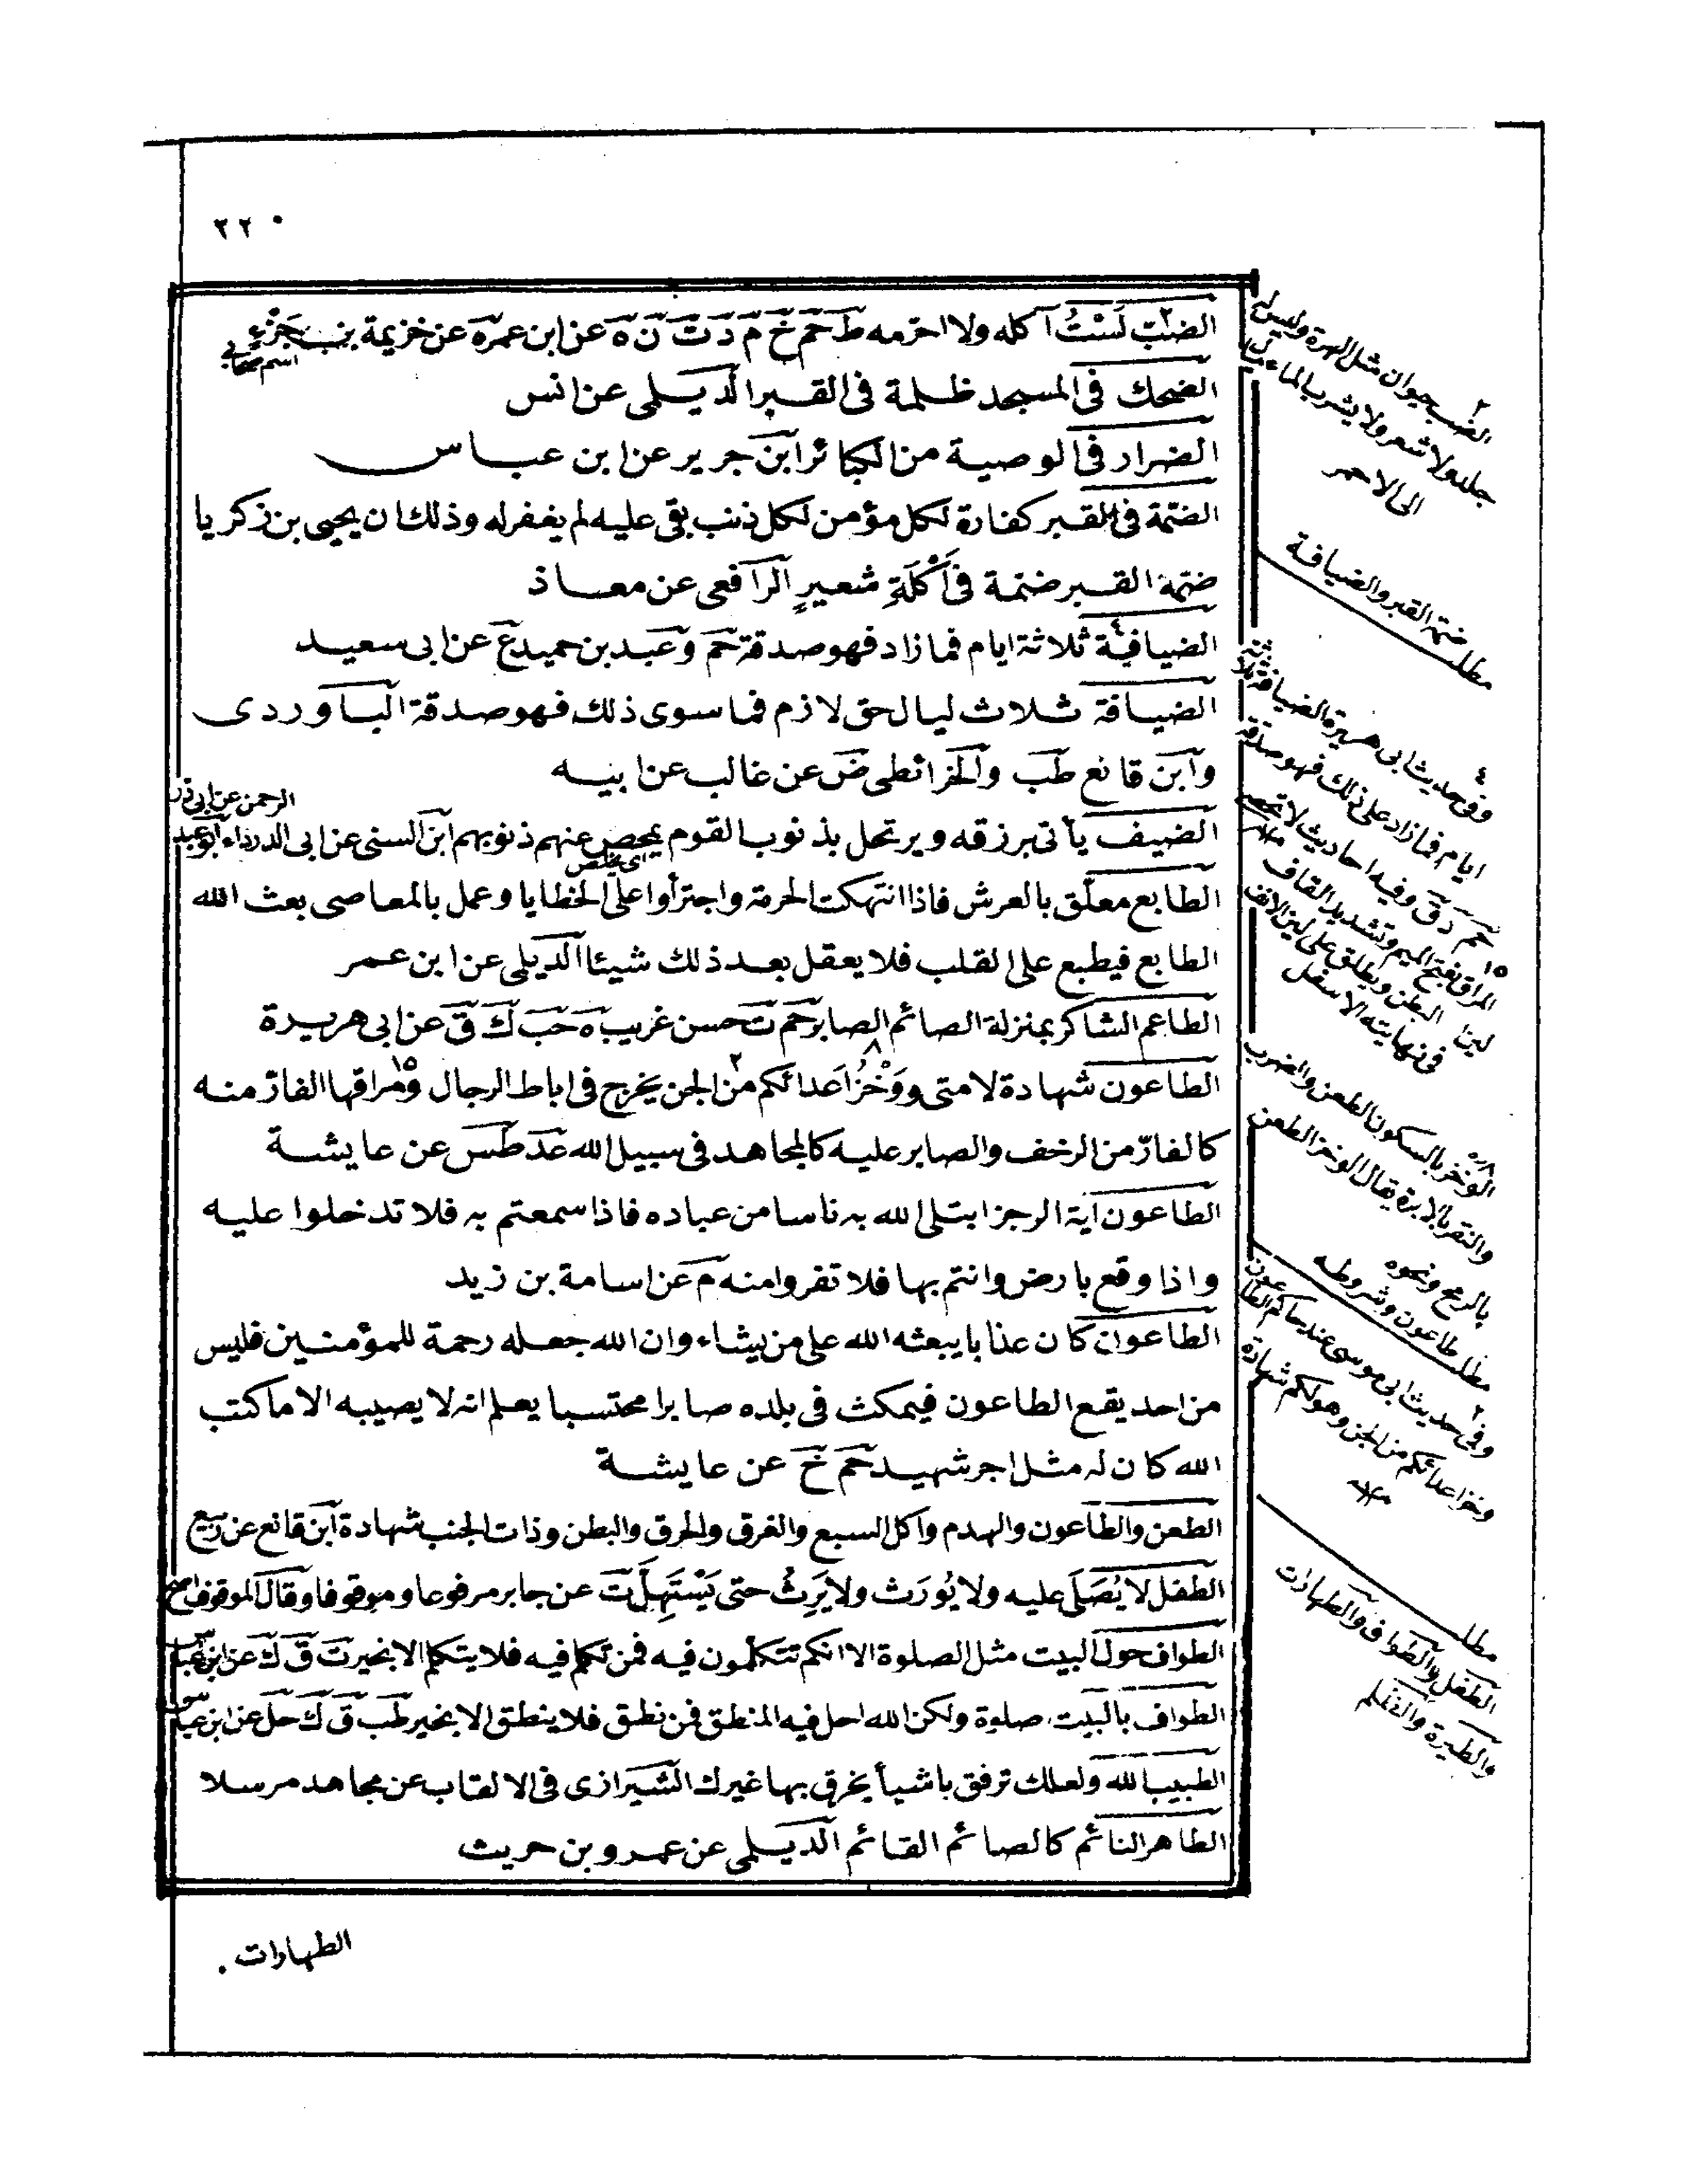 ٢٢٠
الضبّ لَسْتُ آكله ولا احرّمه ط حم خ م د ت ن ه عن ابن عمر ه عن خزيمة بن جَزْء
اسم صحابي
الضحك فى المسجد ظلمة فى القبر الديلمى عن انس
الضرار فى الوصية من الكبائر ابن جرير عن ابن عباس
الضمّة فى القبر كفارة لكل مؤمن لكل ذنب بقى عليه لم يغفر له وذلك ان يحيى بن زكريا
ضمّه القبر ضمّة فى أَكْلَةِ شعيرٍ الرافعى عن معاذ
الضيافة ثلاثة ايام فما زاد فهو صدقة حم وعبد بن حميد ع عن ابى سعيد
الضيافة ثلاث ليال حق لازم فما سوى ذلك فهو صدقة الباوردى
وابن قانع طب والخرائطى ض عن غالب عن ابيه
الضيف يأتى برزقه ويرتحل بذنوب القوم يمحص عنهم ذنوبهم ابن السنى عن ابى الدرداء ابو عبد
الرحمن عن ابى ذر
الطابع معلّق بالعرش فاذا انتهكت الحرمة واجترأوا على الخطايا وعمل بالمعاصى بعث الله
الطابع فيطبع على القلب فلا يعقل بعد ذلك شيئا الديلى عن ابن عمر
الطاعم الشاكر بمنزلة الصائم الصابر حم ت حسن غريب ه حب ك ق عن ابى هريرة
الطاعون شهادة لامتى ووَخْزُ اعدائكم من الجن يخرج فى اباط الرجال ومراقها الفارّ منه
كالفارّ من الزحف والصابر عليه كالمجاهد فى سبيل الله عد طس عن عايشة
الطاعون آية الرجز ابتلى الله به ناسا من عباده فاذا سمعتم به فلا تدخلوا عليه
واذا وقع بارض وانتم بها فلا تفروا منه م عن اسامة بن زيد
الطاعون كان عذابا يبعثه الله على من يشاء وان الله جعله رحمة للمؤمنين فليس
من احد يقع الطاعون فيمكث فى بلده صابرا محتسبا يعلم انه لا يصيبه الا ما كتب
الله كان له مثل اجر شهيد حم خ عن عايشة
الطعن والطاعون والهدم واكل السبع والغرق والحرق والبطن وذات الجنب شهادة ابن قانع عن ربيع
الطفل لا يُصَلَى عليه ولا يُورَث ولا يَرِثُ حتى يَسْتَهِلّ ت عن جابر مرفوعا وموقوفا وقال الموقوف اصح
الطواف حول البيت مثل الصلوة الا انكم تتكلمون فيه فمن تكلم فيه فلا يتكلم الا بخير ت ق ك عن ابن عباس
الطواف بالبيت صلوة ولكن الله احل فيه المنطق فمن نطق فلا ينطق الا بخير طب ق ك حل عن ابن عباس
الطبيب الله ولعلك ترفق باشياء يخرق بها غيرك الشيرازى فى الالقاب عن مجاهد مرسلا
الطاهر النائم كالصائم القائم الديلمى عن عمرو بن حريث
الطهارات
الضب حيوان مثل الهرة وليس له
جلد ولا شعر ولا يشرب الماء
الى الاحمر
مطلب ضمة القبر والضيافة
وفى حديث ابى هريرة الضيافة ثلاثة
ايام فما زاد على ذلك فهو صدقة
حم د ق وفيه احاديث لا تحصى
المراق بفتح الميم وتشديد القاف
لين البطن ويطلق على لين الانف
فى نهايته الاسفل
الوخز بالسكون الطعن والضرب
والنقر بالابرة يقال الوخز الطعن
بالرمح ونحوه
مطلب طاعون وشروطه
وفى حديث ابى موسى عند حاكم الطاعون
وخز اعدائكم من الجن وهو لكم شهادة
مطلب
الطفل والطواف والطهارات
والطيرة والظلم